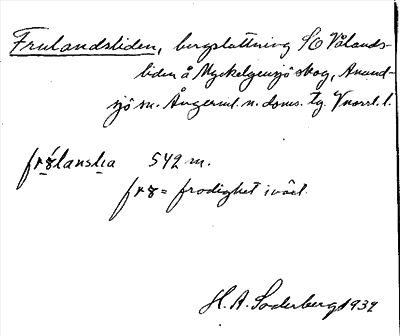 Frulandsliden, bergsluttning SO Vålands-
liden å Myckelgensjö skog, Anund-
sjö sn. Ångerml. n. doms. tg. Vnorrl. l.
542 m.
= frodighet i växl.
H. A. Söderberg 1934